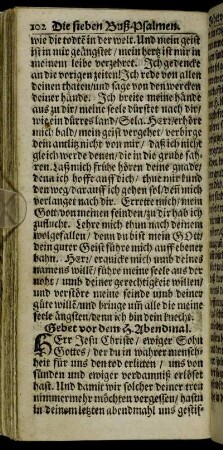 102 Die sieben Buß-Psalmen.
wie die todtē in der welt. Und mein geist
ist in mir geängstet / mein hertz ist mir in
meinem leibe verzehret. Ich gedencke
an die vorigen zeiten / Ich rede von allen
deinen thaten / und sage von den wercken
deiner hände. Ich breite meine hände
aus zu dir / meine seele dürstet nach dir /
wie ein dürres land / Sela. Herr / erhör
mich bald / mein geist vergehet / verbirge
dein antlitz nicht von mir / daß ich nicht
gleich werde denen / die in die grube fah-
ren. Laß mich frühe hören deine gnade /
denn ich hoffe auf dich / thue mir kund
den weg / darauff ich gehen sol / deñ mich
verlanget nach dir. Errette mich / mein
Gott / von meinen feinden / zu dir hab ich
zuflucht. Lehre mich thun nach deinem
wolgefallen / denn du bist mein GOtt /
dein guter Geist führe mich auff ebener
bahn. Herr / erquicke mich umb deines
namens willē / führe meine seele aus der
noht / umb deiner gerechtigkeit willen /
und verstöre meine feinde umb deiner
güte willē / und bringe um alle die meine
seele ängsten / denn ich bin dein knecht.
Gebet vor dem H. Abendmal.
HErr Jesu Christe / ewiger Sohn
Gottes / der du in wahrer mensch-
heit für uns den tod erlitten / uns von
sünden und ewiger verdamniß erlöset
hast. Und damit wir solcher deiner treu
nimmermehr möchten vergessen / hastu
in deinem letzten abendmahl uns gestif-